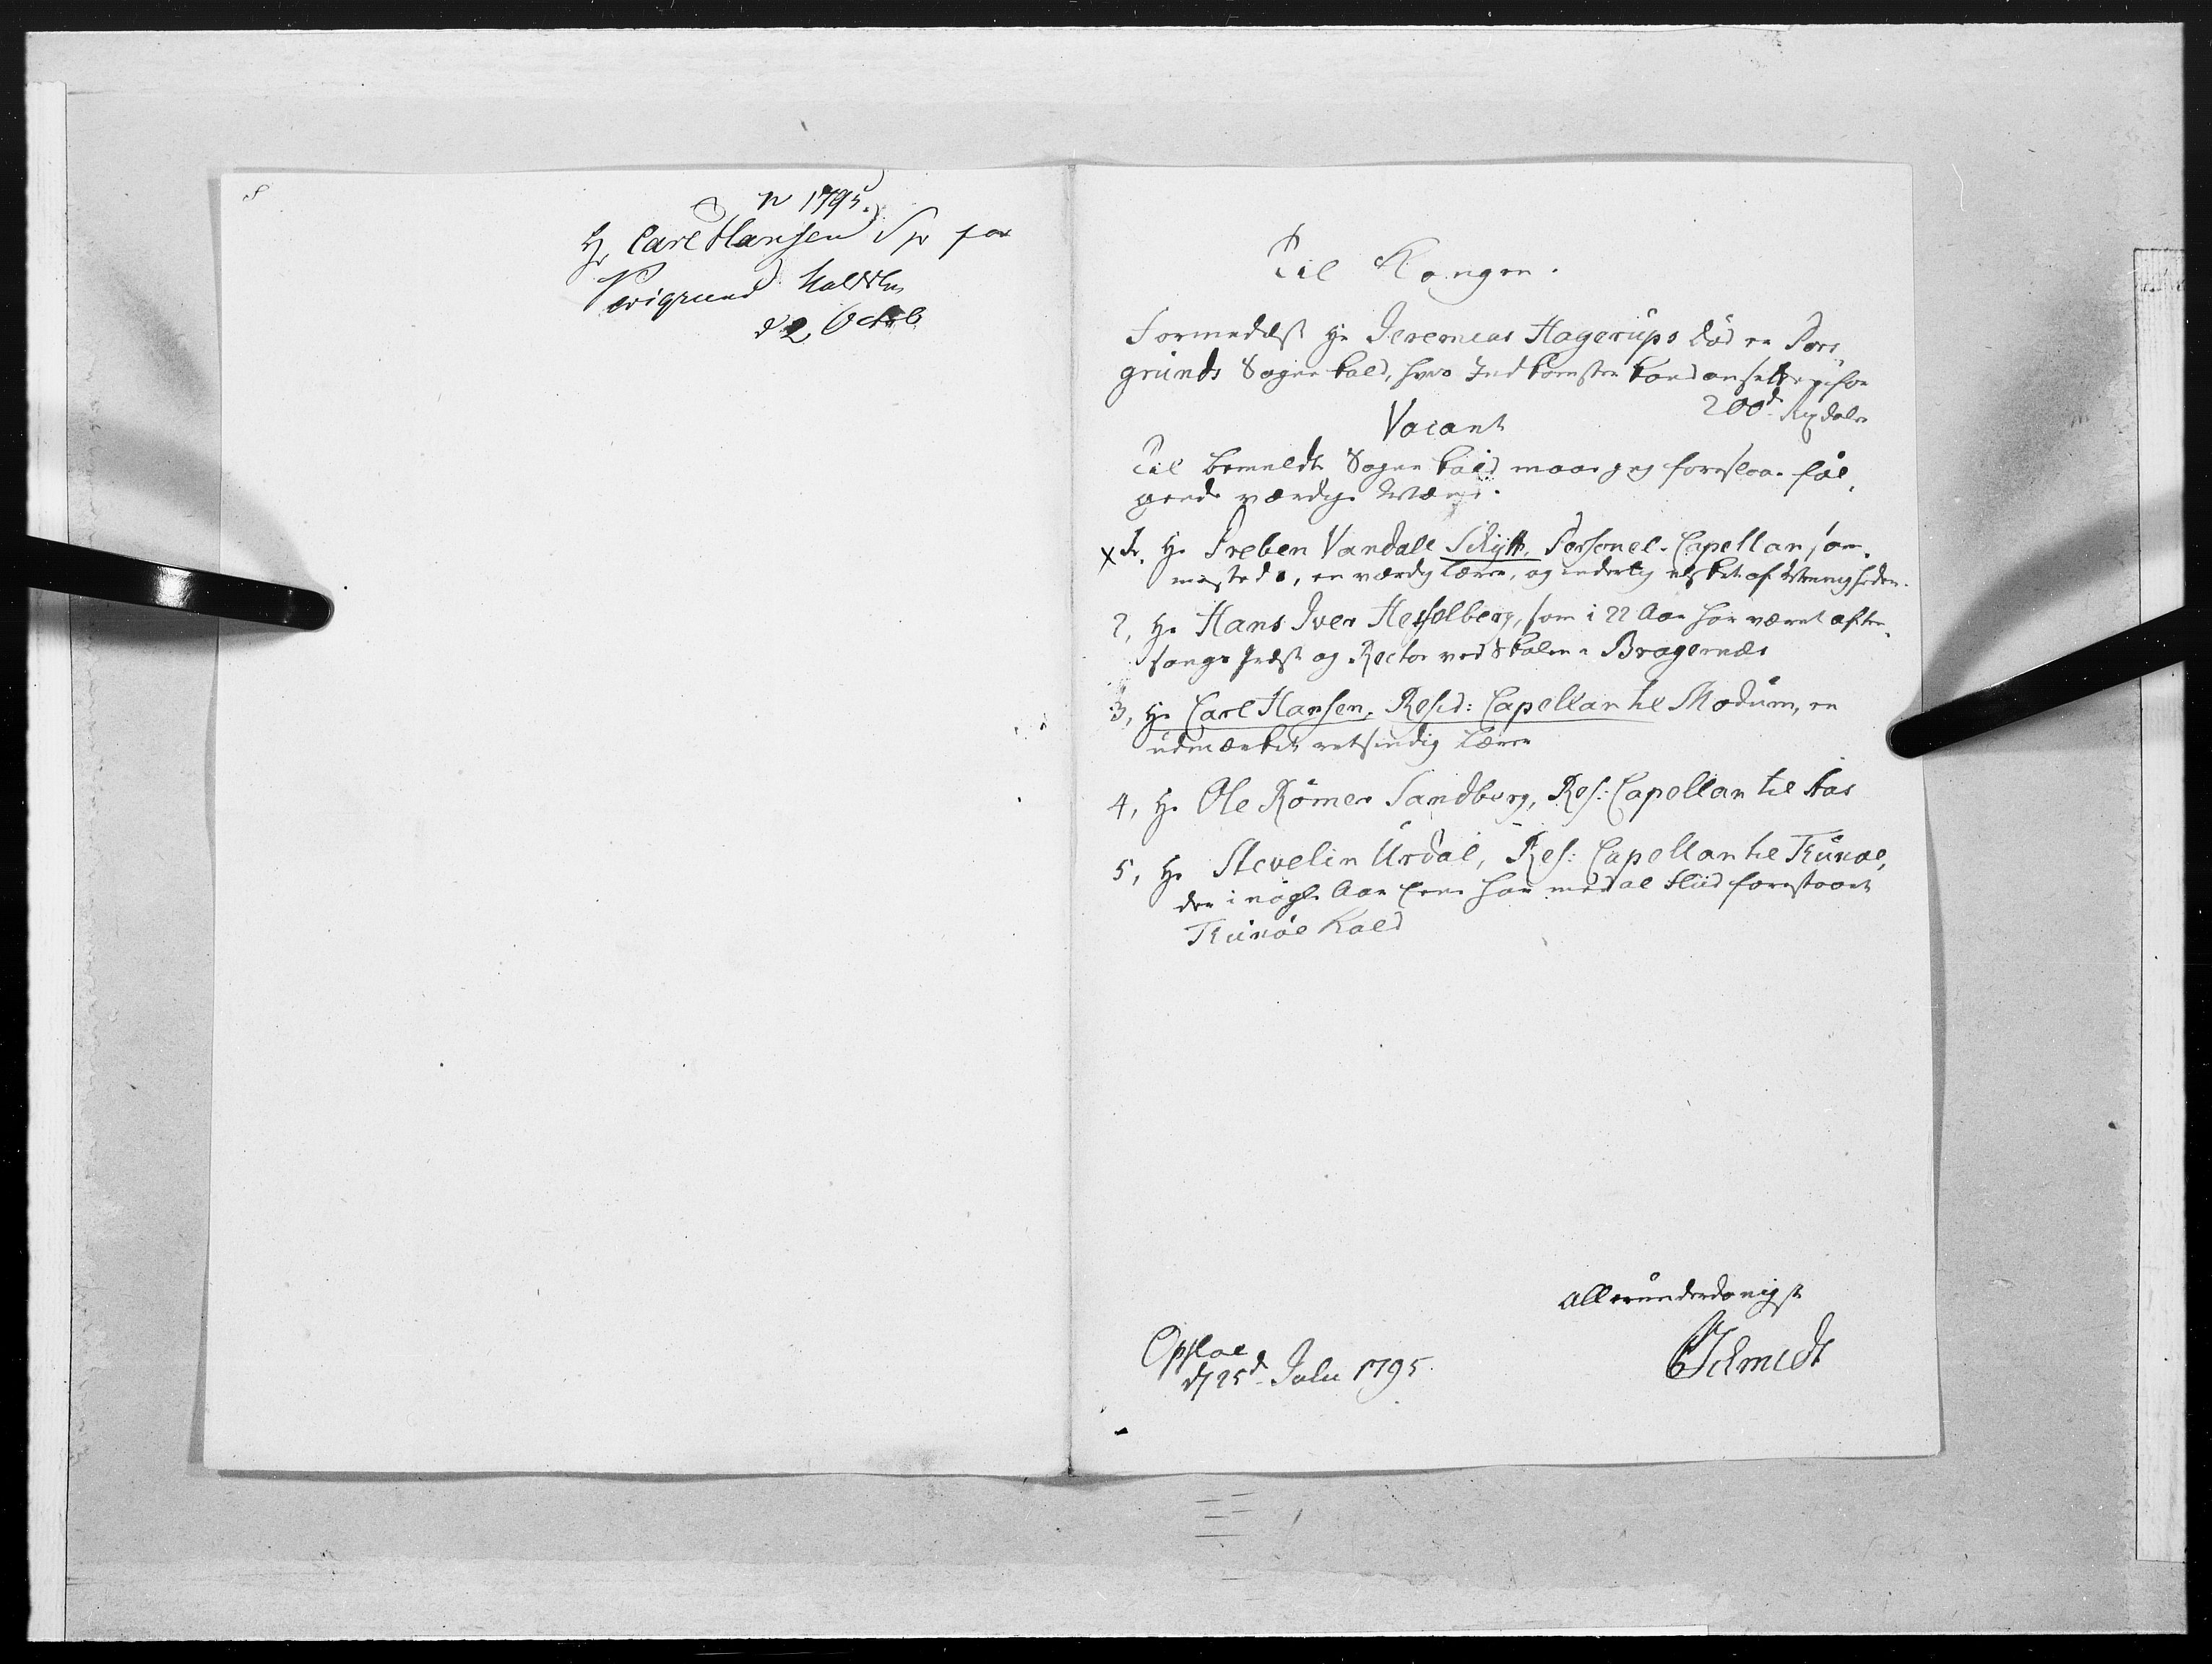 1795.
Hr Carl Hansen Sp for
Porsgrund Kald
d 2 Octob
Til Kongen.
Formedelst Hr Jeremias Hagerups Død er Pors,
grunds Sogne kald, hvis Indkomster kand ansættes for
200d Rixdaler
Vacant
Til bemeldte Sogne kald maae jeg foreslaae føl,
gende værdige Mænd.
x 1. Hr Preben Vandall Schytte, Personel-Capellan sam,
mesteds, en værdig Lærer, og inderlig elsket af Menigheden.
2, Hr Hans Iver Hesselberg, som i 22 Aar har været aften,
sangs Præst og Rector ved Skolen i Bragernæs
3, Hr Carl Hansen, Resid: Capellan til Modum, en
udmærket retsindig Lærer
4, Hr Ole Rømer Sandberg, Res: Capellan til Aas
5, Hr Stevelin Urdal, Res: Capellan til Thunøe,
der i nogle Aar har med al Fliid forestaaet
Thunøe Kald
allerunderdanigst
Opsloe
d 25d Julii 1795.
CSchmidt